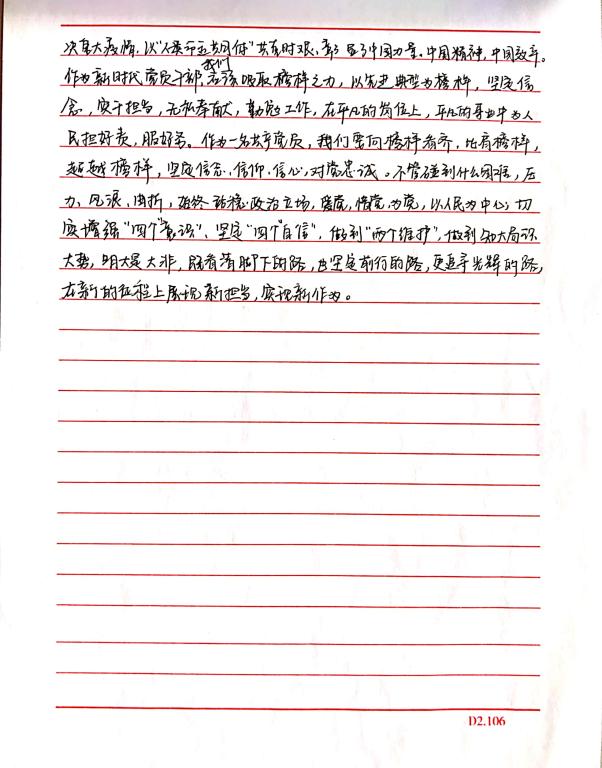 次重大疫情,以"人类命运共同体"共克时艰,彰显了中国力量,中国精神,中国效率。
作为新时代党员干部,我们应该吸取榜样之力,以先进典型为榜样,坚定信
念,实干担当,无私奉献,勤勉工作,在平凡的岗位上,平凡的事业中为人
民担好责,服好务。作为一名共产党员,我们要向榜样看齐,比肩榜样,
超越榜样,坚定信念、信仰、信心,对党忠诚。不管碰到什么困难,压
力、风浪、曲折,始终站稳政治立场,爱党,忧党,为党,以人民为中心;切
实增强"四个意识"、坚定"四个自信",做到"两个维护",做到知大局识
大势,明大是大非,既看清脚下的路,也坚定前行的路,更追寻光辉的路,
在新的征程上展现新担当,实现新作为。
D2.106